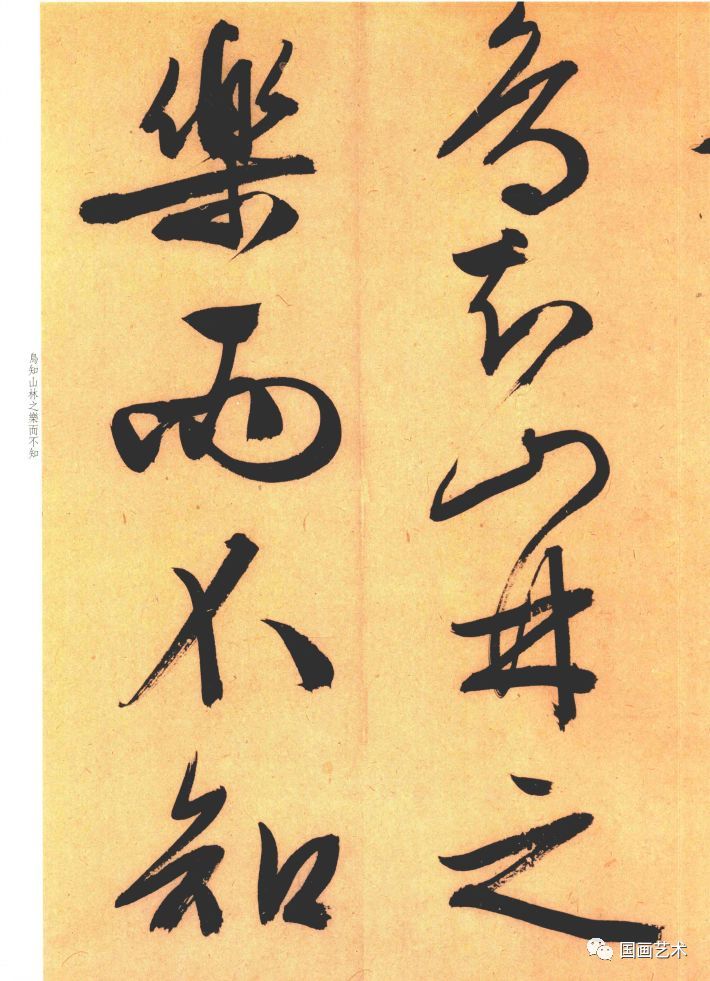 鳥知山林之
樂而不知
鳥知山林之樂而不知
国画艺术